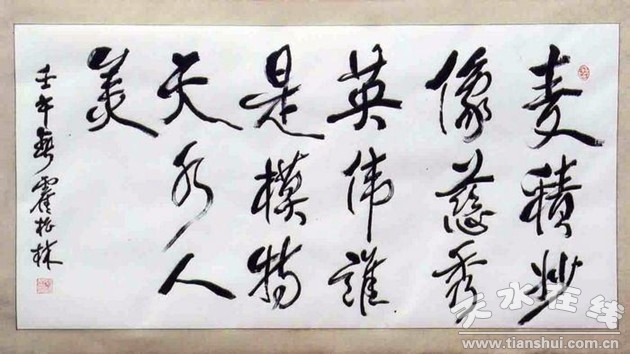 麦積妙
像慈秀
英伟誰
是模特
天水人
美
壬午 霍松林
天水在线
www.tianshui.com.cn